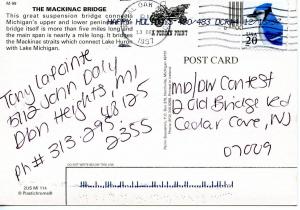 M-99
THE MACKINAC BRIDGE
This great suspension bridge connects
Michigan's upper and lower peninsulas. The
bridge itself is more than five miles long and
the main span is nearly a mile long. It bridges
the Mackinac straits which connect Lake Huron
with Lake Michigan.
1997
USA
20
POST CARD
Tony LaFainte
5112 John Daly
Dbn Heights, MI
48125
Ph # 313 295
2355
Contest
2 Old Bridge Rd
Cedar Cove, NJ
07009
DO NOT WRITE BELOW THIS LINE
2US MI 114
© Plastichrome®